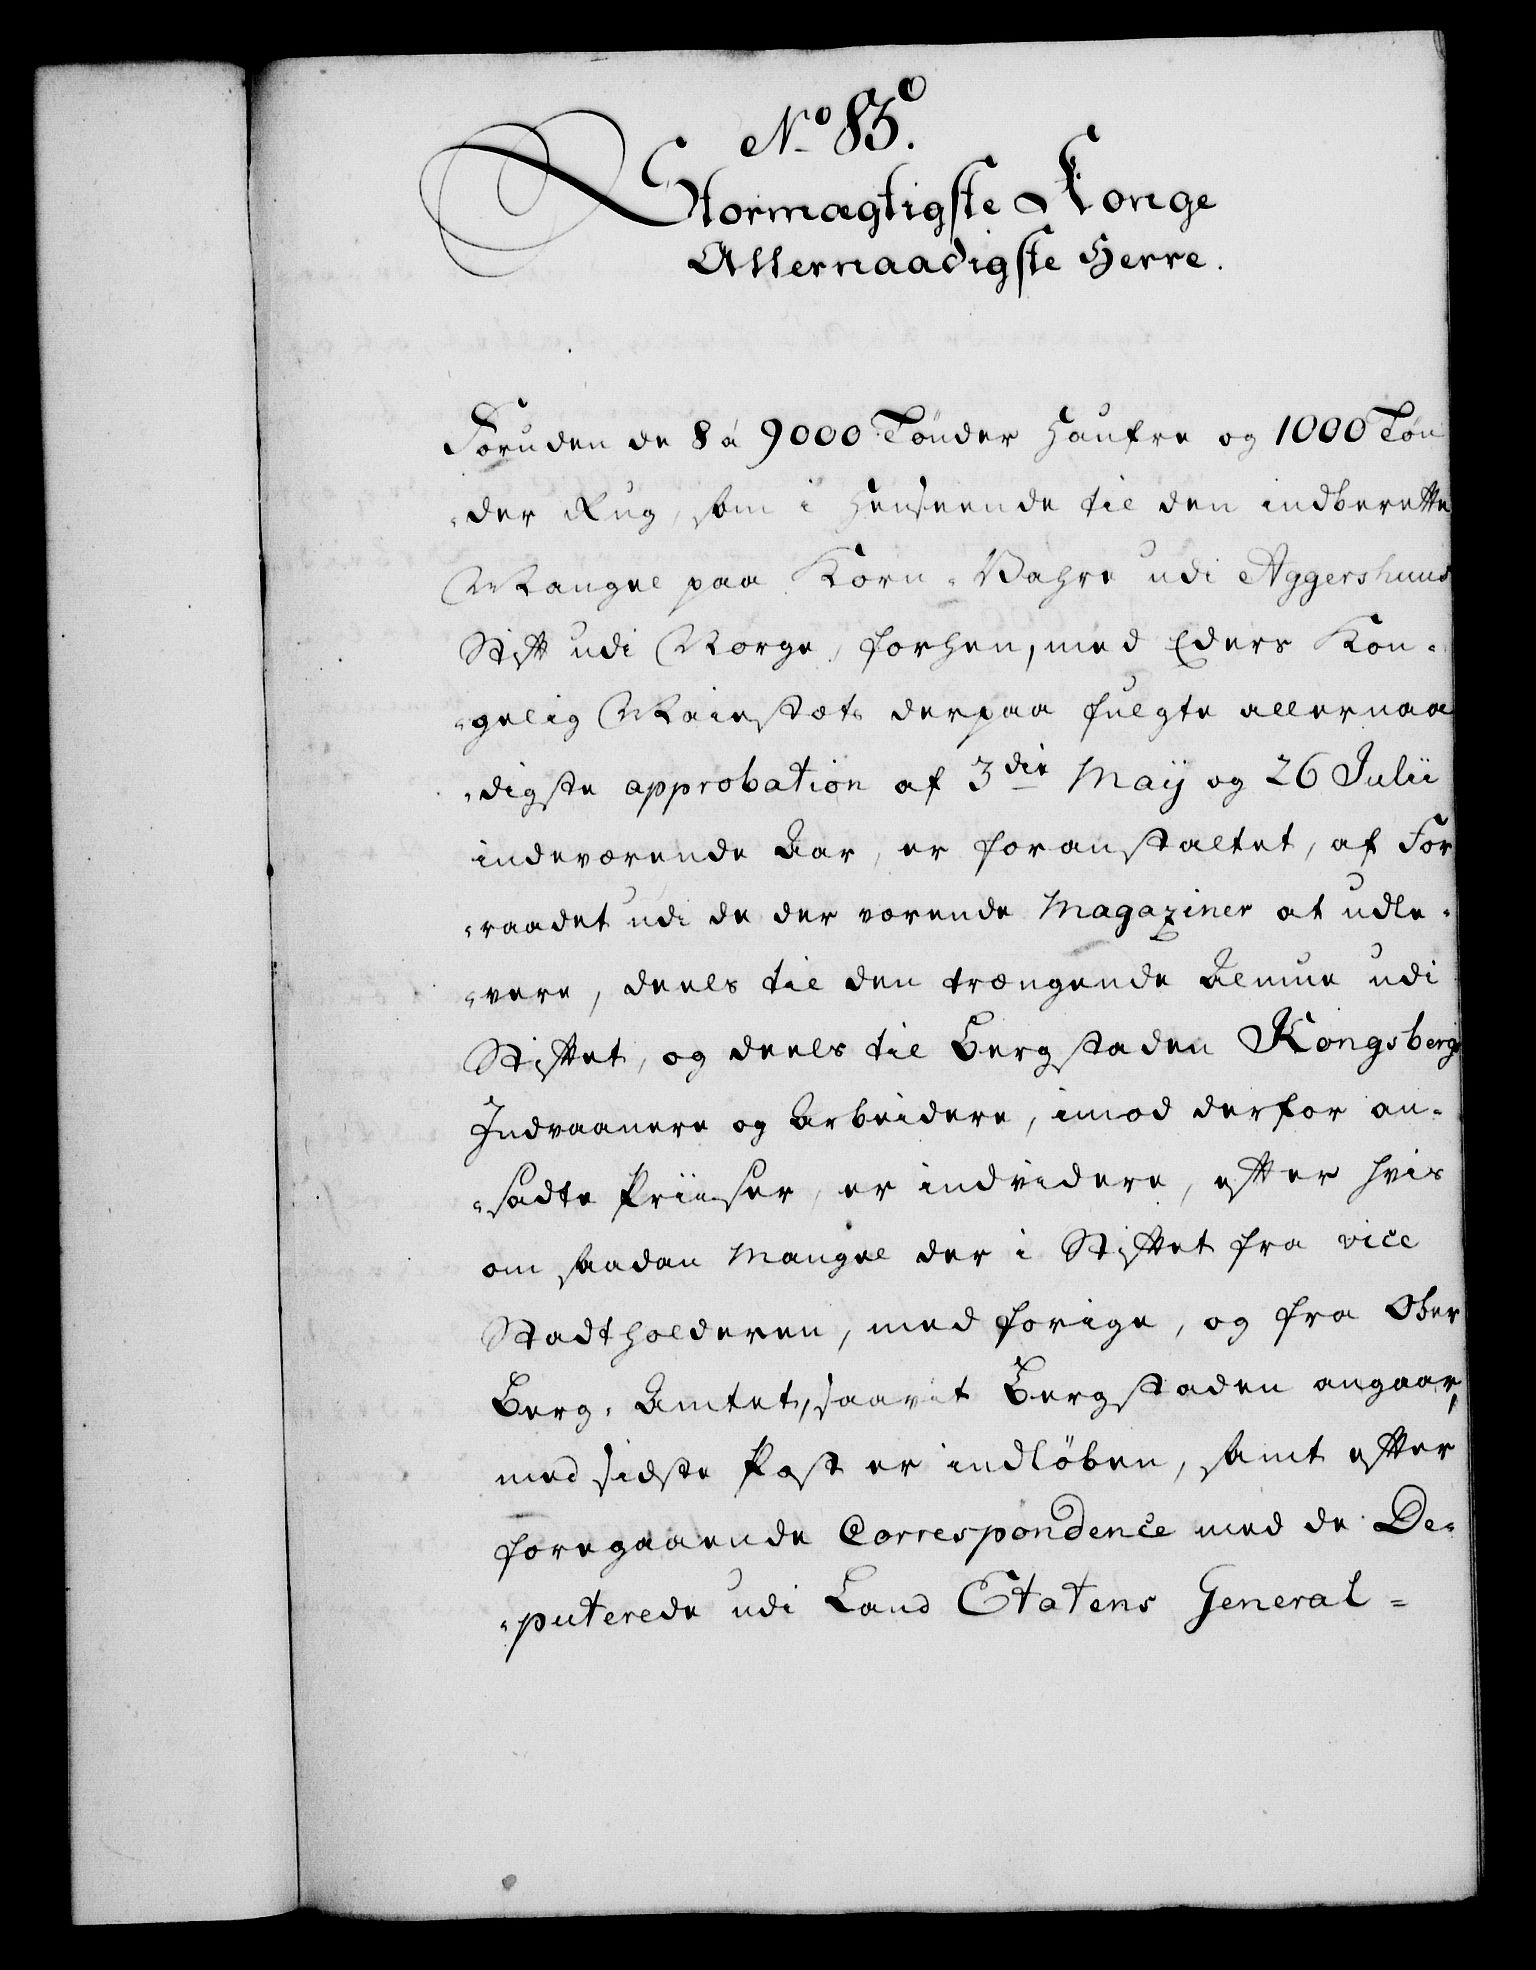 No 83.
Stormægtigste Konge
Allernaadigste Herre.
Foruden de 8 à 9000 Tønder Haufre og 1000 Tøn
-der Rug, som i Henseende til den indberette
Mangel paa Korn-Vahre udi Aggershuus
Stift udi Norge, forhen, med Eders Kon-
-gelig Maiestæts derpaa fulgte allernaa
-digste approbation af 3die Maij og 26 Julii
indeværende Aar, er foranstaltet, af For
-raadet udi de der værende Magaziner at udle-
-vere, deels til den trængende Almue udi
Stiftet, og deels til Bergstaden Kongsbergs
Indvaanere og Arbeidere, imod derfor an-
-sadte Priiser, er indvidere, efter hvis
om saadan Mangel der i Stiftet fra vice
Stadtholderen, med forige, og fra Ober
Berg-Amtet, saavit Bergstaden angaar,
med sidste Post er indløben, samt efter
foregaaende Correspondence med de De-
-puterede udi Land Etatens General-